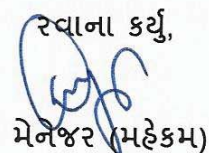 રવાના કર્યુ,
મેનેજર (મહેકમ)